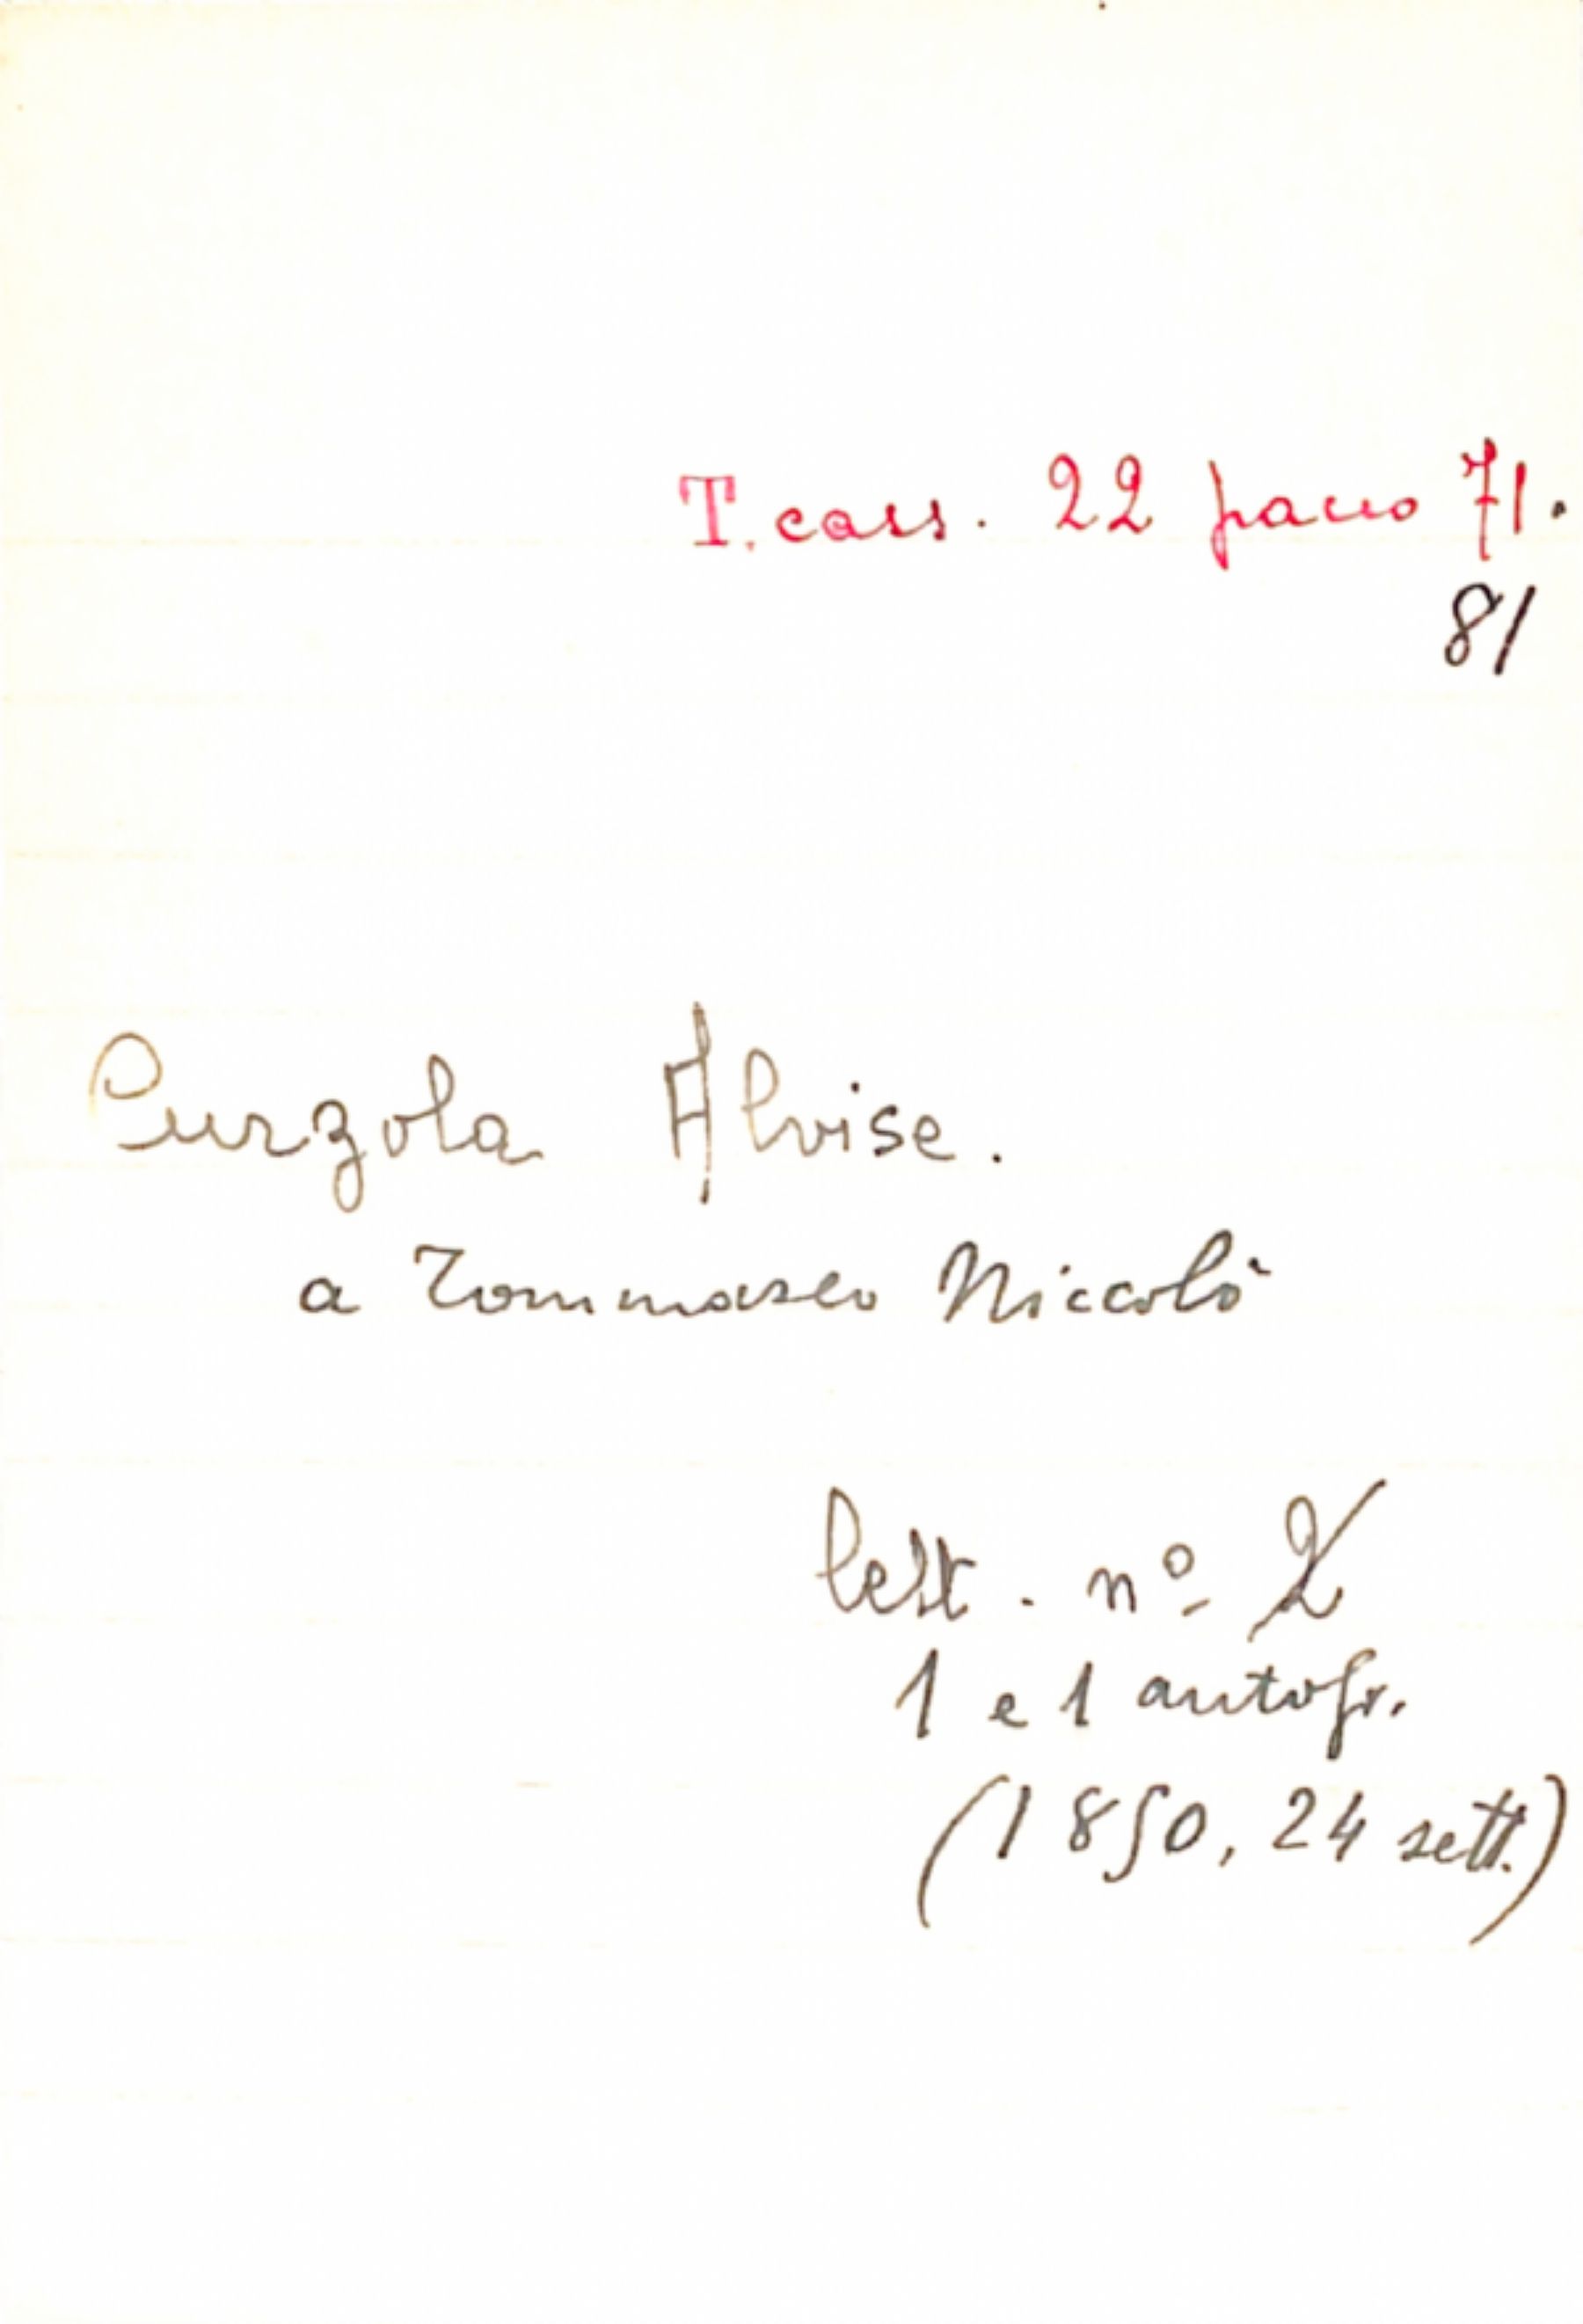 T. cass. 22 pacco 71.
81
Curzola Alvise.
a Tommaseo Niccolò
lett. nº 2
1 e 1 autogr.
(1850, 24 sett.)